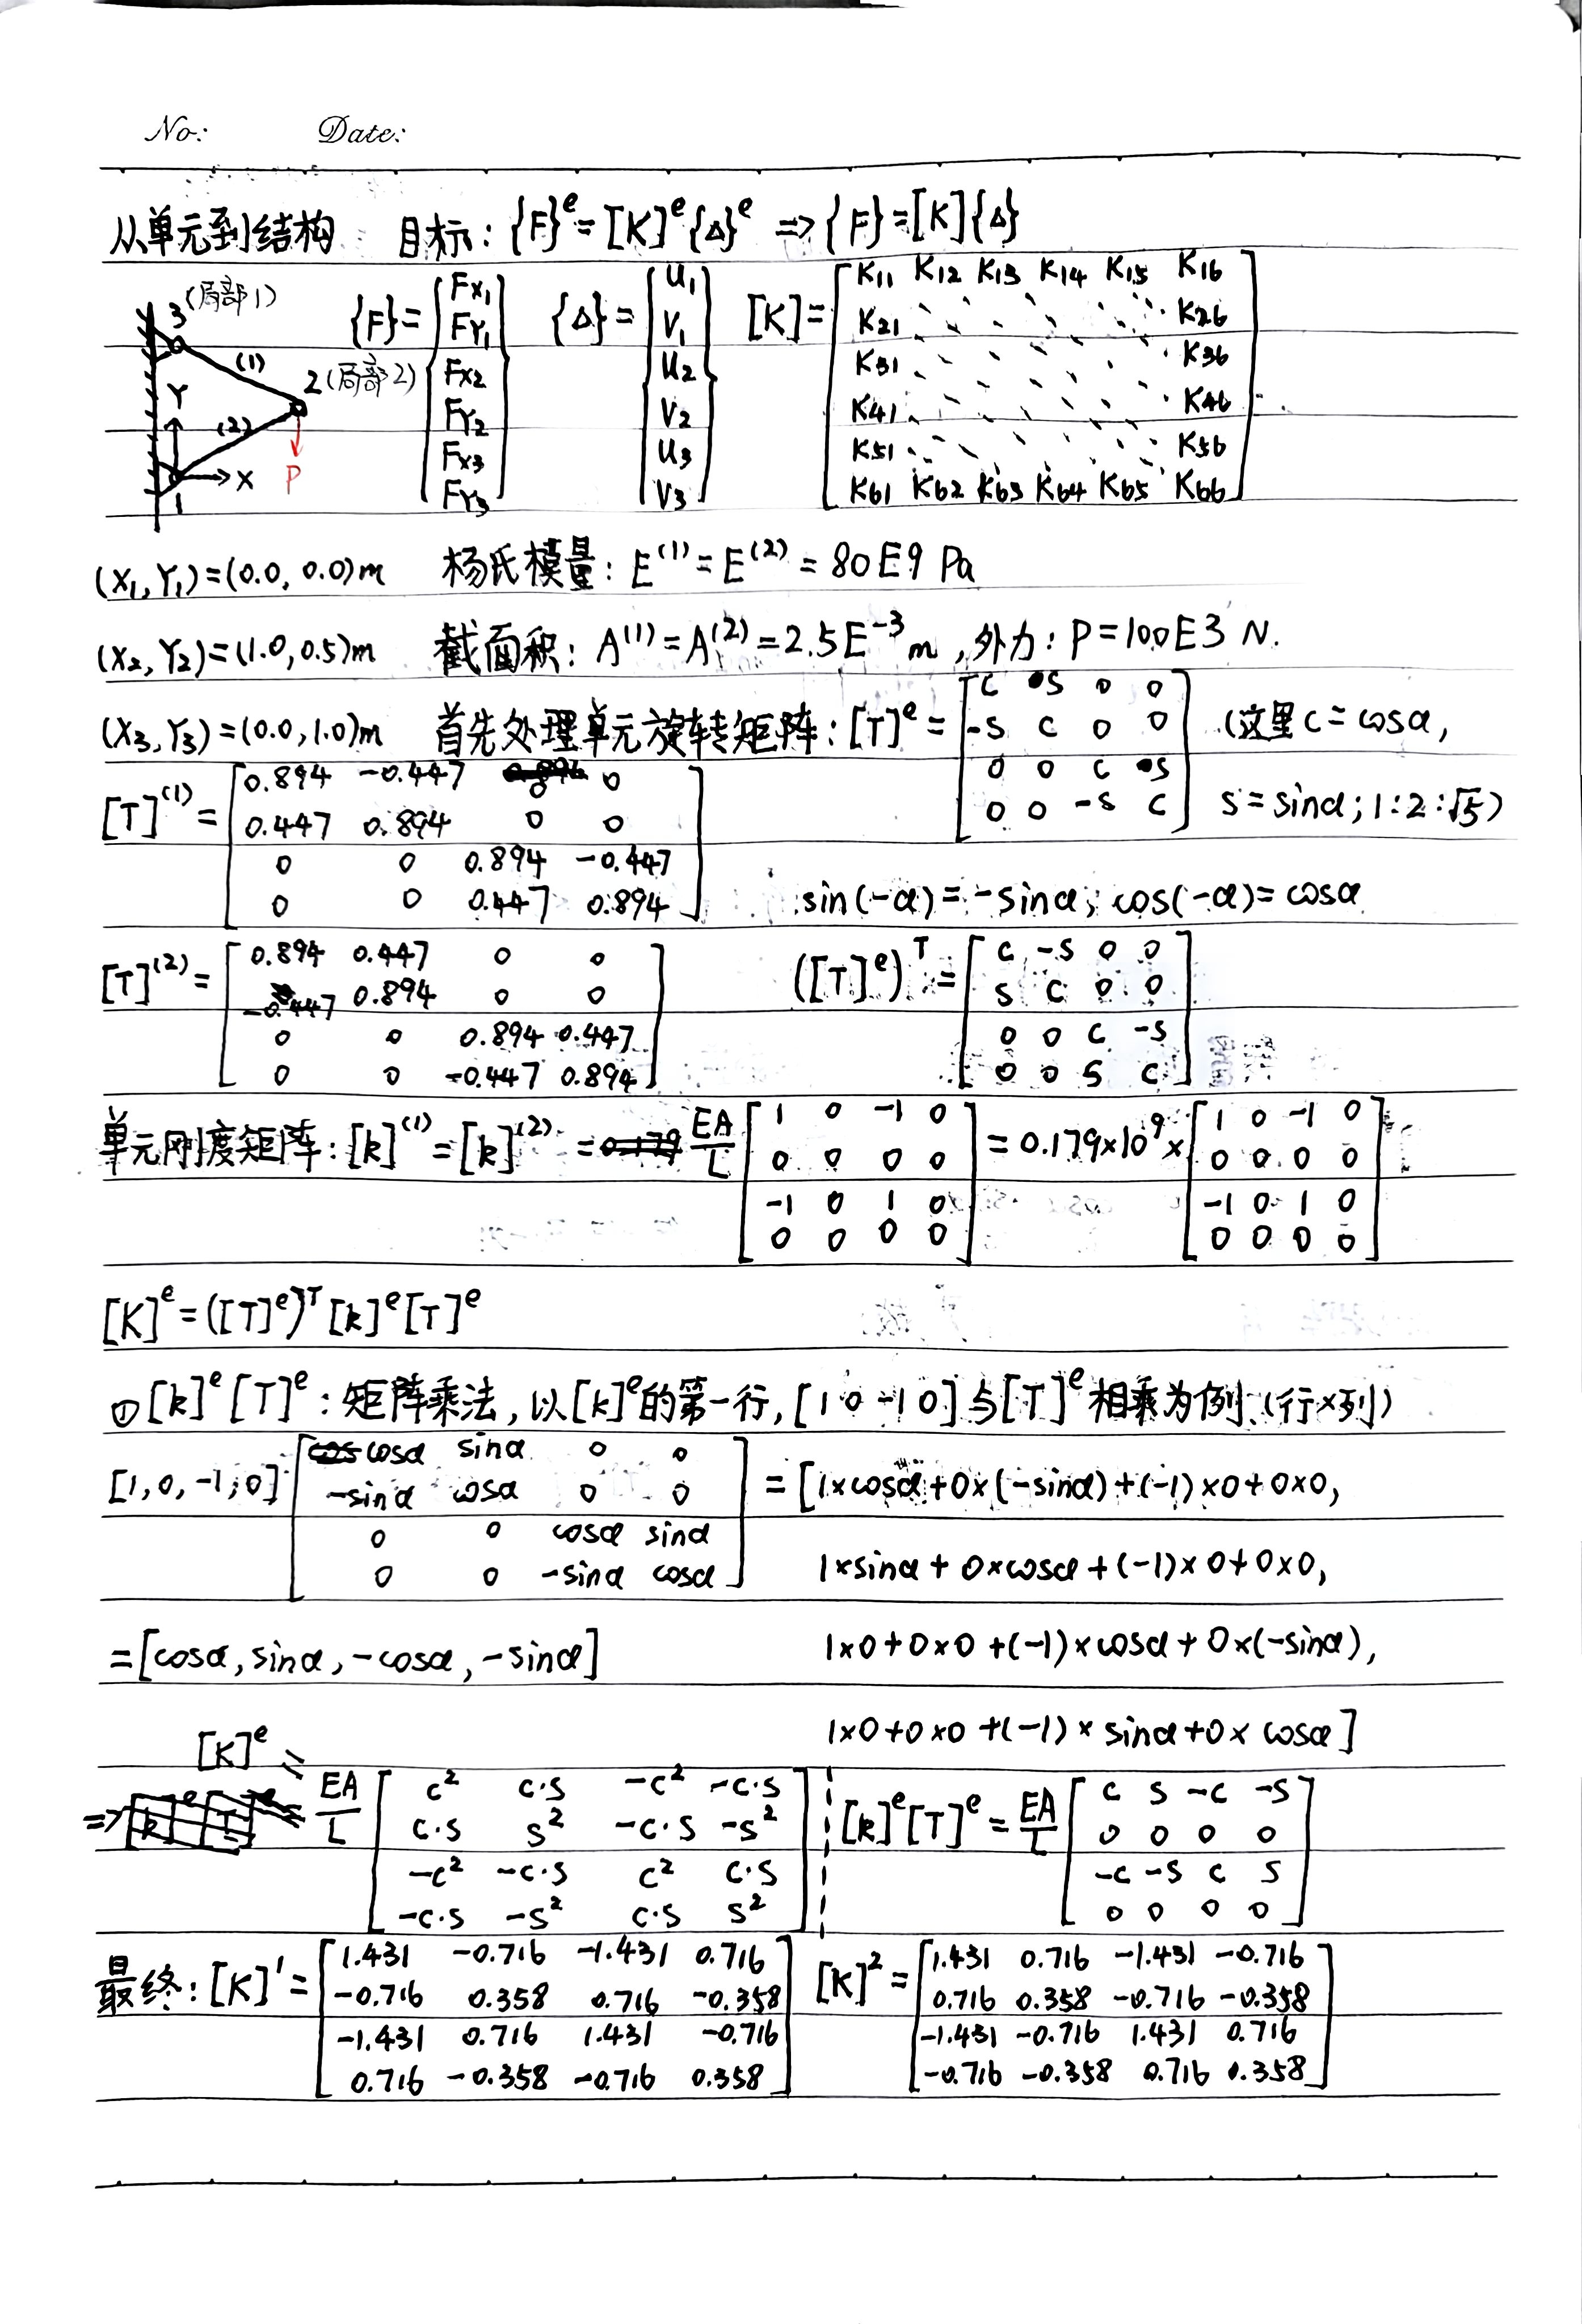 No: Date:
从单元到结构 目标: {F}^e=[K]^e{Δ}^e => {F}=[K]{Δ}
3 (局部1) (1) 2 (局部2) Y (2) P X 1
{F}= Fx1 FY1 Fx2 FY2 Fx3 FY3
{Δ}= U1 V1 U2 V2 U3 V3
[K]= K11 K12 K13 K14 K15 K16
K21 K26
K31 K36
K41 K46
K51 K56
K61 K62 K63 K64 K65 K66
(X1,Y1)=(0.0, 0.0)m 杨氏模量: E^(1)=E^(2)=80E9 Pa
(X2,Y2)=(1.0,0.5)m 截面积: A^(1)=A^(2)=2.5E^-3 m, 外力: P=100E3 N.
(X3,Y3)=(0.0,1.0)m 首先处理单元旋转矩阵: [T]^e=
C S 0 0
-S C 0 0
0 0 C S
0 0 -S C
(这里C=cosα,
S=sinα; 1:2:√5)
[T]^(1)=
0.894 -0.447 0 0
0.447 0.894 0 0
0 0 0.894 -0.447
0 0 0.447 0.894
sin(-α)=-sinα; cos(-α)=cosα
[T]^(2)=
0.894 0.447 0 0
-0.447 0.894 0 0
0 0 0.894 0.447
0 0 -0.447 0.894
([T]^e)^T=
C -S 0 0
S C 0 0
0 0 C -S
0 0 S C
单元刚度矩阵: [k]^(1)=[k]^(2)= EA/L
1 0 -1 0
0 0 0 0
-1 0 1 0
0 0 0 0
=0.179×10^9×
1 0 -1 0
0 0 0 0
-1 0 1 0
0 0 0 0
[K]^e=([T]^e)^T[k]^e[T]^e
①[k]^e[T]^e: 矩阵乘法, 以[k]^e的第一行, [1 0 -1 0]与[T]^e相乘为例 (行×列)
[1,0,-1,0]
cosα sinα 0 0
-sinα cosα 0 0
0 0 cosα sinα
0 0 -sinα cosα
=[1×cosα+0×(-sinα)+(-1)×0+0×0,
1×sinα+0×cosα+(-1)×0+0×0,
1×0+0×0+(-1)×cosα+0×(-sinα),
1×0+0×0+(-1)×sinα+0×cosα]
=[cosα, sinα, -cosα, -sinα]
=> [K]^e= EA/L
C² C·S -C² -C·S
C·S S² -C·S -S²
-C² -C·S C² C·S
-C·S -S² C·S S²
[k]^e[T]^e= EA/L
C S -C -S
0 0 0 0
-C -S C S
0 0 0 0
最终: [K]^1=
1.431 -0.716 -1.431 0.716
-0.716 0.358 0.716 -0.358
-1.431 0.716 1.431 -0.716
0.716 -0.358 -0.716 0.358
[K]^2=
1.431 0.716 -1.431 -0.716
0.716 0.358 -0.716 -0.358
-1.431 -0.716 1.431 0.716
-0.716 -0.358 0.716 0.358